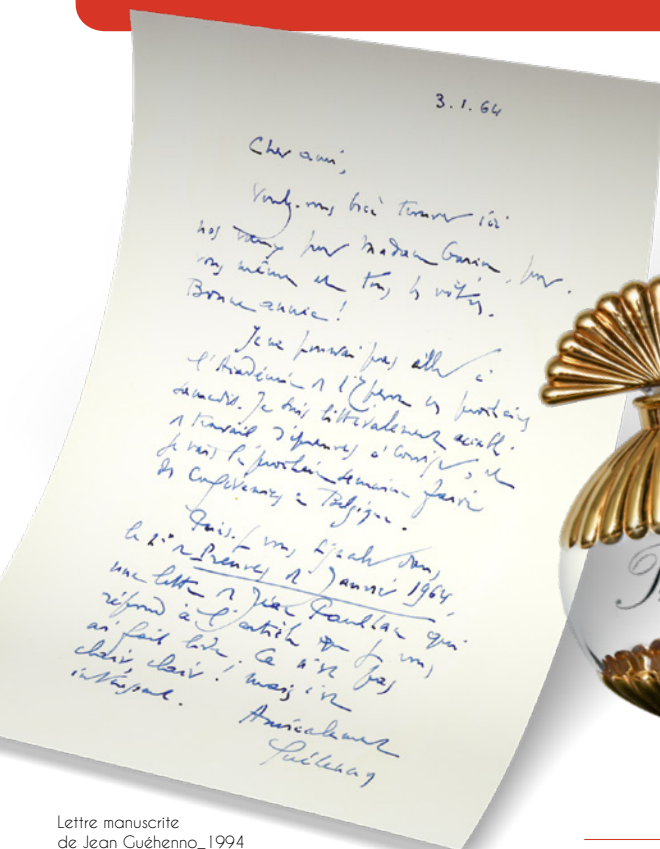 3.1.64
Cher ami,
Voulez-vous bien trouver ici
nos vœux pour Madame, pour
vous même et tous les vôtres.
Bonne année!
Je ne pourrai pas aller à
l'Académie ces prochains
samedis. Je suis littéralement accablé
de travail d'épreuves à corriger, et
je vais la prochaine semaine faire
des conférences en Belgique.
Puis-je vous signaler dans
le n° de Preuves de Janvier 1964,
une lettre de Jean Paulhan qui
répond à l'article que je vous
ai fait lire. Ce n'est pas
clair, clair! mais c'est
Amicalement
Guéhenno
Lettre manuscrite
de Jean Guéhenno_1994